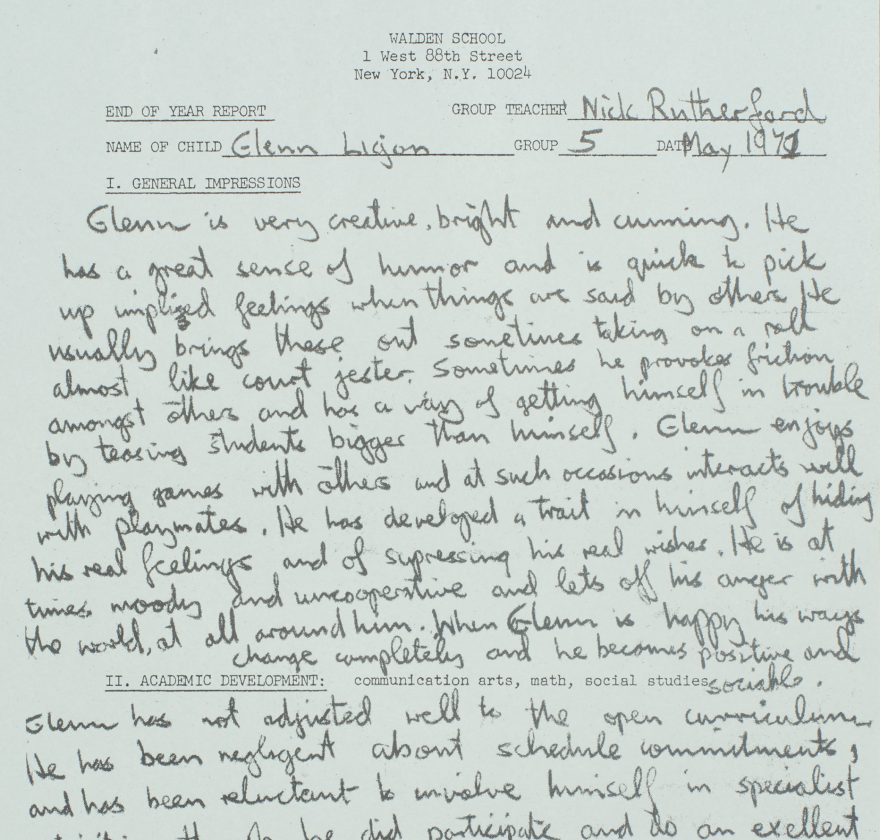 WALDEN SCHOOL
1 West 88th Street
New York, N.Y. 10024
END OF YEAR REPORT GROUP TEACHER Nick Rutherford
NAME OF CHILD Glenn Ligon GROUP 5 DATE May 1971
I. GENERAL IMPRESSIONS
Glenn is very creative, bright and cunning. He
has a great sense of humor and is quick to pick
up implied feelings when things are said by others. He
usually brings these out sometimes taking on a roll
almost like court jester. Sometimes he provokes friction
amongst others and has a way of getting himself in trouble
by teasing students bigger than himself. Glenn enjoys
playing games with others and at such occasions interacts well
with playmates. He has developed a trait in himself of hiding
his real feelings and of supressing his real wishes. He is at
times moody and uncooperative and lets off his anger with
the world, at all around him. When Glenn is happy his ways
change completely and he becomes positive and
sociable.
II. ACADEMIC DEVELOPMENT: communication arts, math, social studies
Glenn has not adjusted well to the open curriculum
He has been negligent about schedule commitments,
and has been reluctant to involve himself in specialist
he did participate and do an exellent